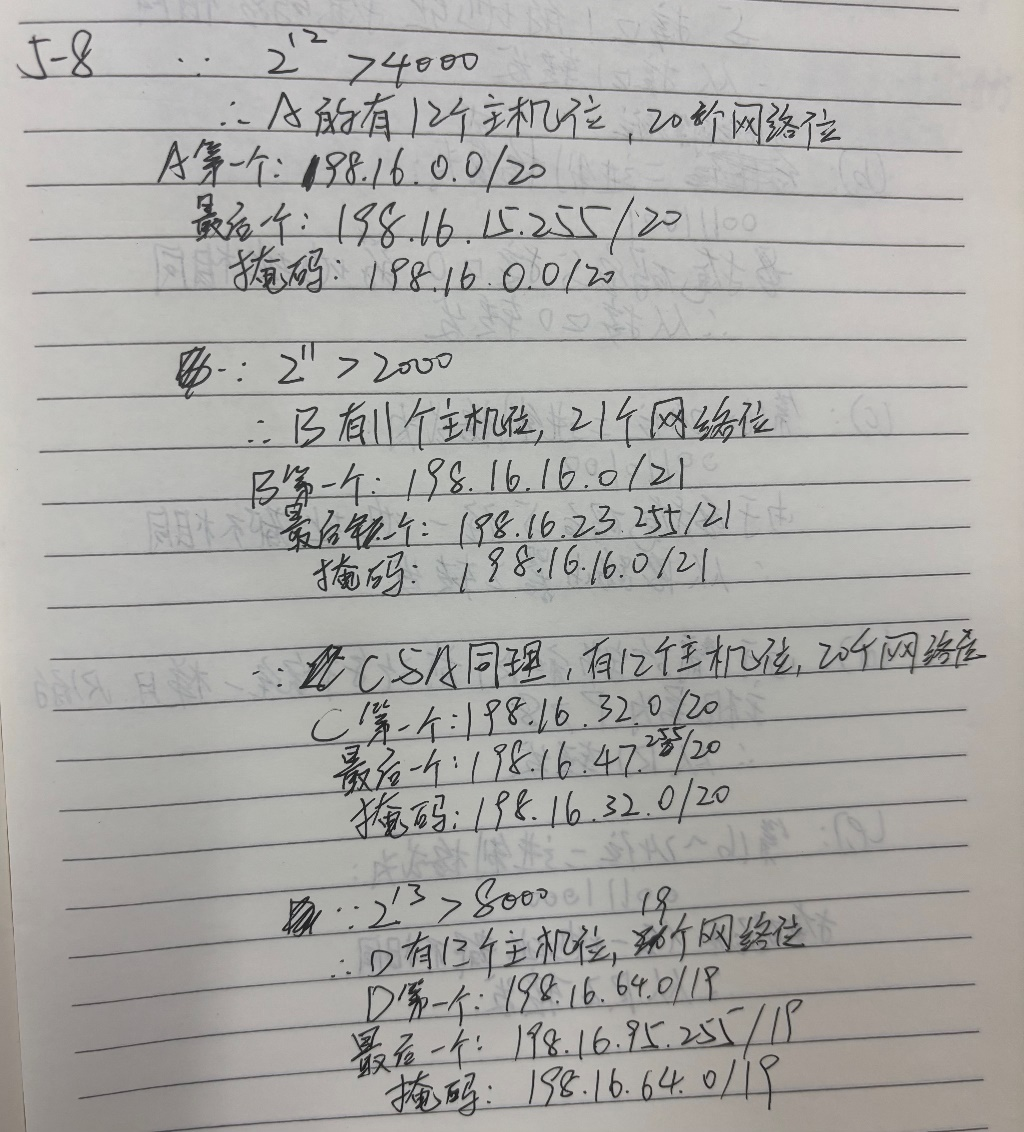 5-8 ∵ 2^12 > 4000
∴ A 有12个主机位, 20个网络位
A第一个: 198.16.0.0/20
最后一个: 198.16.15.255/20
掩码: 198.16.0.0/20
∵ 2^11 > 2000
∴ B有11个主机位, 21个网络位
B第一个: 198.16.16.0/21
最后一个: 198.16.23.255/21
掩码: 198.16.16.0/21
∵ C与A同理, 有12个主机位, 20个网络位
C第一个: 198.16.32.0/20
最后一个: 198.16.47.255/20
掩码: 198.16.32.0/20
∵ 2^13 > 8000
∴ D有13个主机位, 19个网络位
D第一个: 198.16.64.0/19
最后一个: 198.16.95.255/19
掩码: 198.16.64.0/19